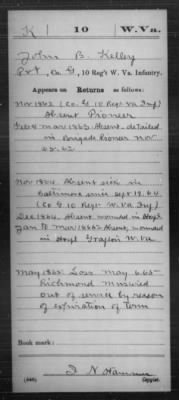 K 10 W.Va.
John B. Kelley
Pvt, Co. G, 10 Reg't W. Va. Infantry.
Appears on Returns as follows:
Nov 1862 (Co. G 10 Regt Va Inf)
Absent Pioneer
Feb & Mar 1863 Absent detailed
in Brigade Pioneer Nov
28.62
Nov 1864 Absent sick in
Baltimore since Sept 19.64
(Co G 10 Regt W. Va Inf)
Dec 1864 Absent wounded in Hospl
Jany to Mar 1865 Absent, wounded
in Hospl Grafton W. Va
May 1865 Loss May 6.65
Richmond Mustered
out of service by reason
of expiration of term
Book mark:
(546) Copyist.